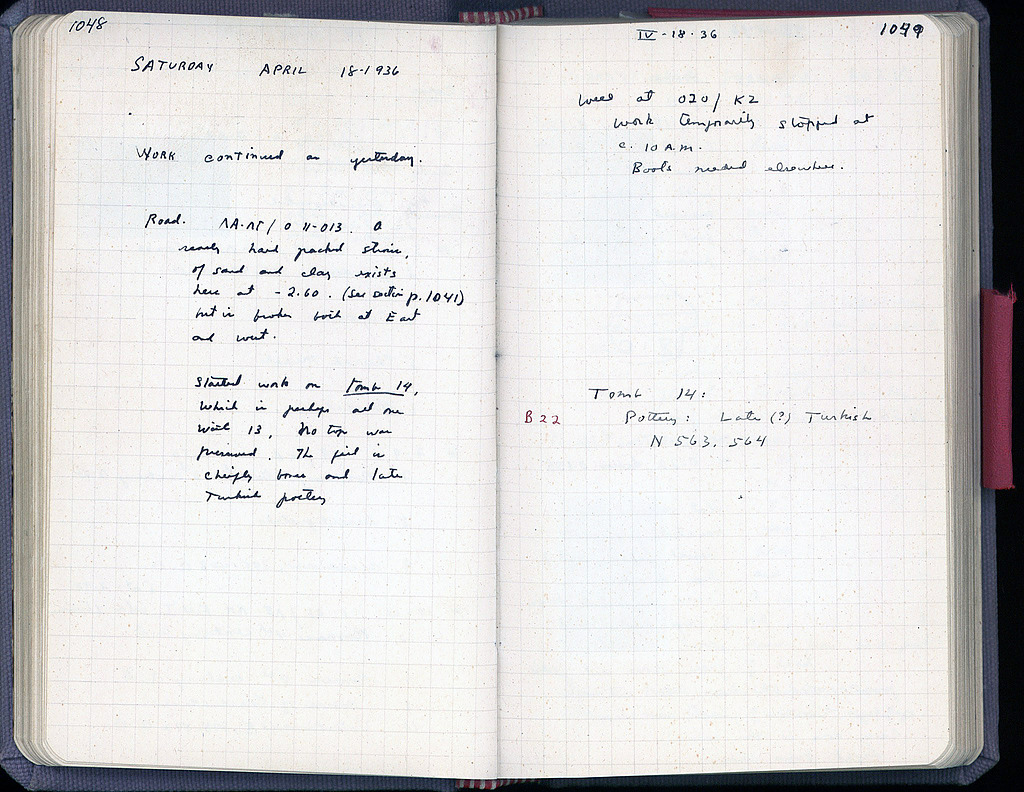 1048
SATURDAY APRIL 18-1936
WORK continued as yesterday.
Road. ΛΑ-ΛΓ/ 0 11-013. A
nearly hard packed
of sand and clay exists
here at -2.60. (See section p. 1041)
but is broken both at East
and west.
Started work on Tomb 14,
which is perhaps all one
with 13. No top was
preserved. The fill is
cheifly bones and late
Turkish pottery
1049
IV-18-36
Well at 020/ K2
work temporarily stopped at
c. 10 A.M.
needed elsewhere.
Tomb 14:
B 22
Pottery: Late (?) Turkish
N 563. 564